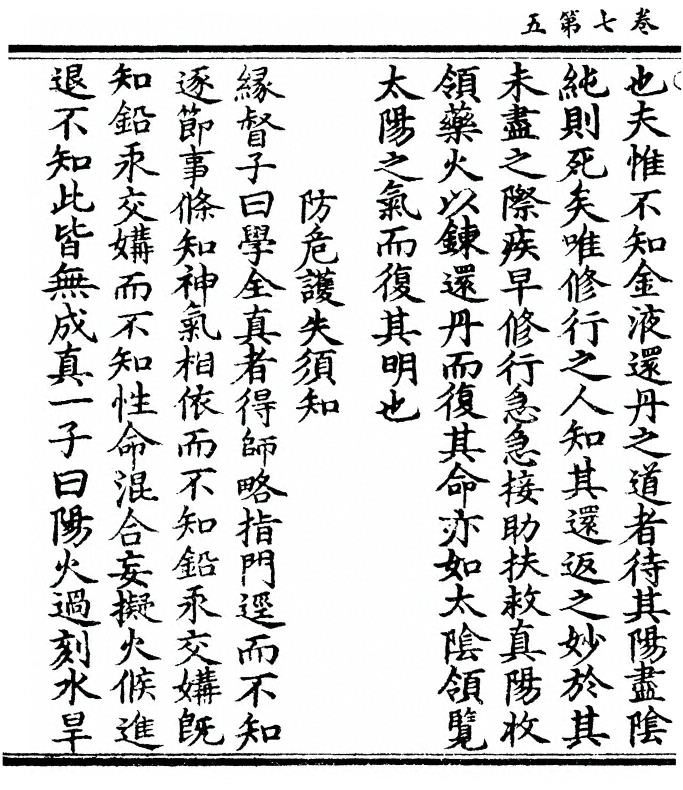 卷七第五
也夫惟不知金液還丹之道者待其陽盡陰
純則死矣唯修行之人知其還返之妙於其
未盡之際疾早修行急急接助扶救真陽收
領藥火以鍊還丹而復其命亦如太陰領覽
太陽之氣而復其明也
防危護失須知
緣督子曰學全真者得師略指門逕而不知
逐節事條知神氣相依而不知鉛汞交媾旣
知鉛汞交媾而不知性命混合妄擬火候進
退不知此皆無成真一子曰陽火過刻水旱